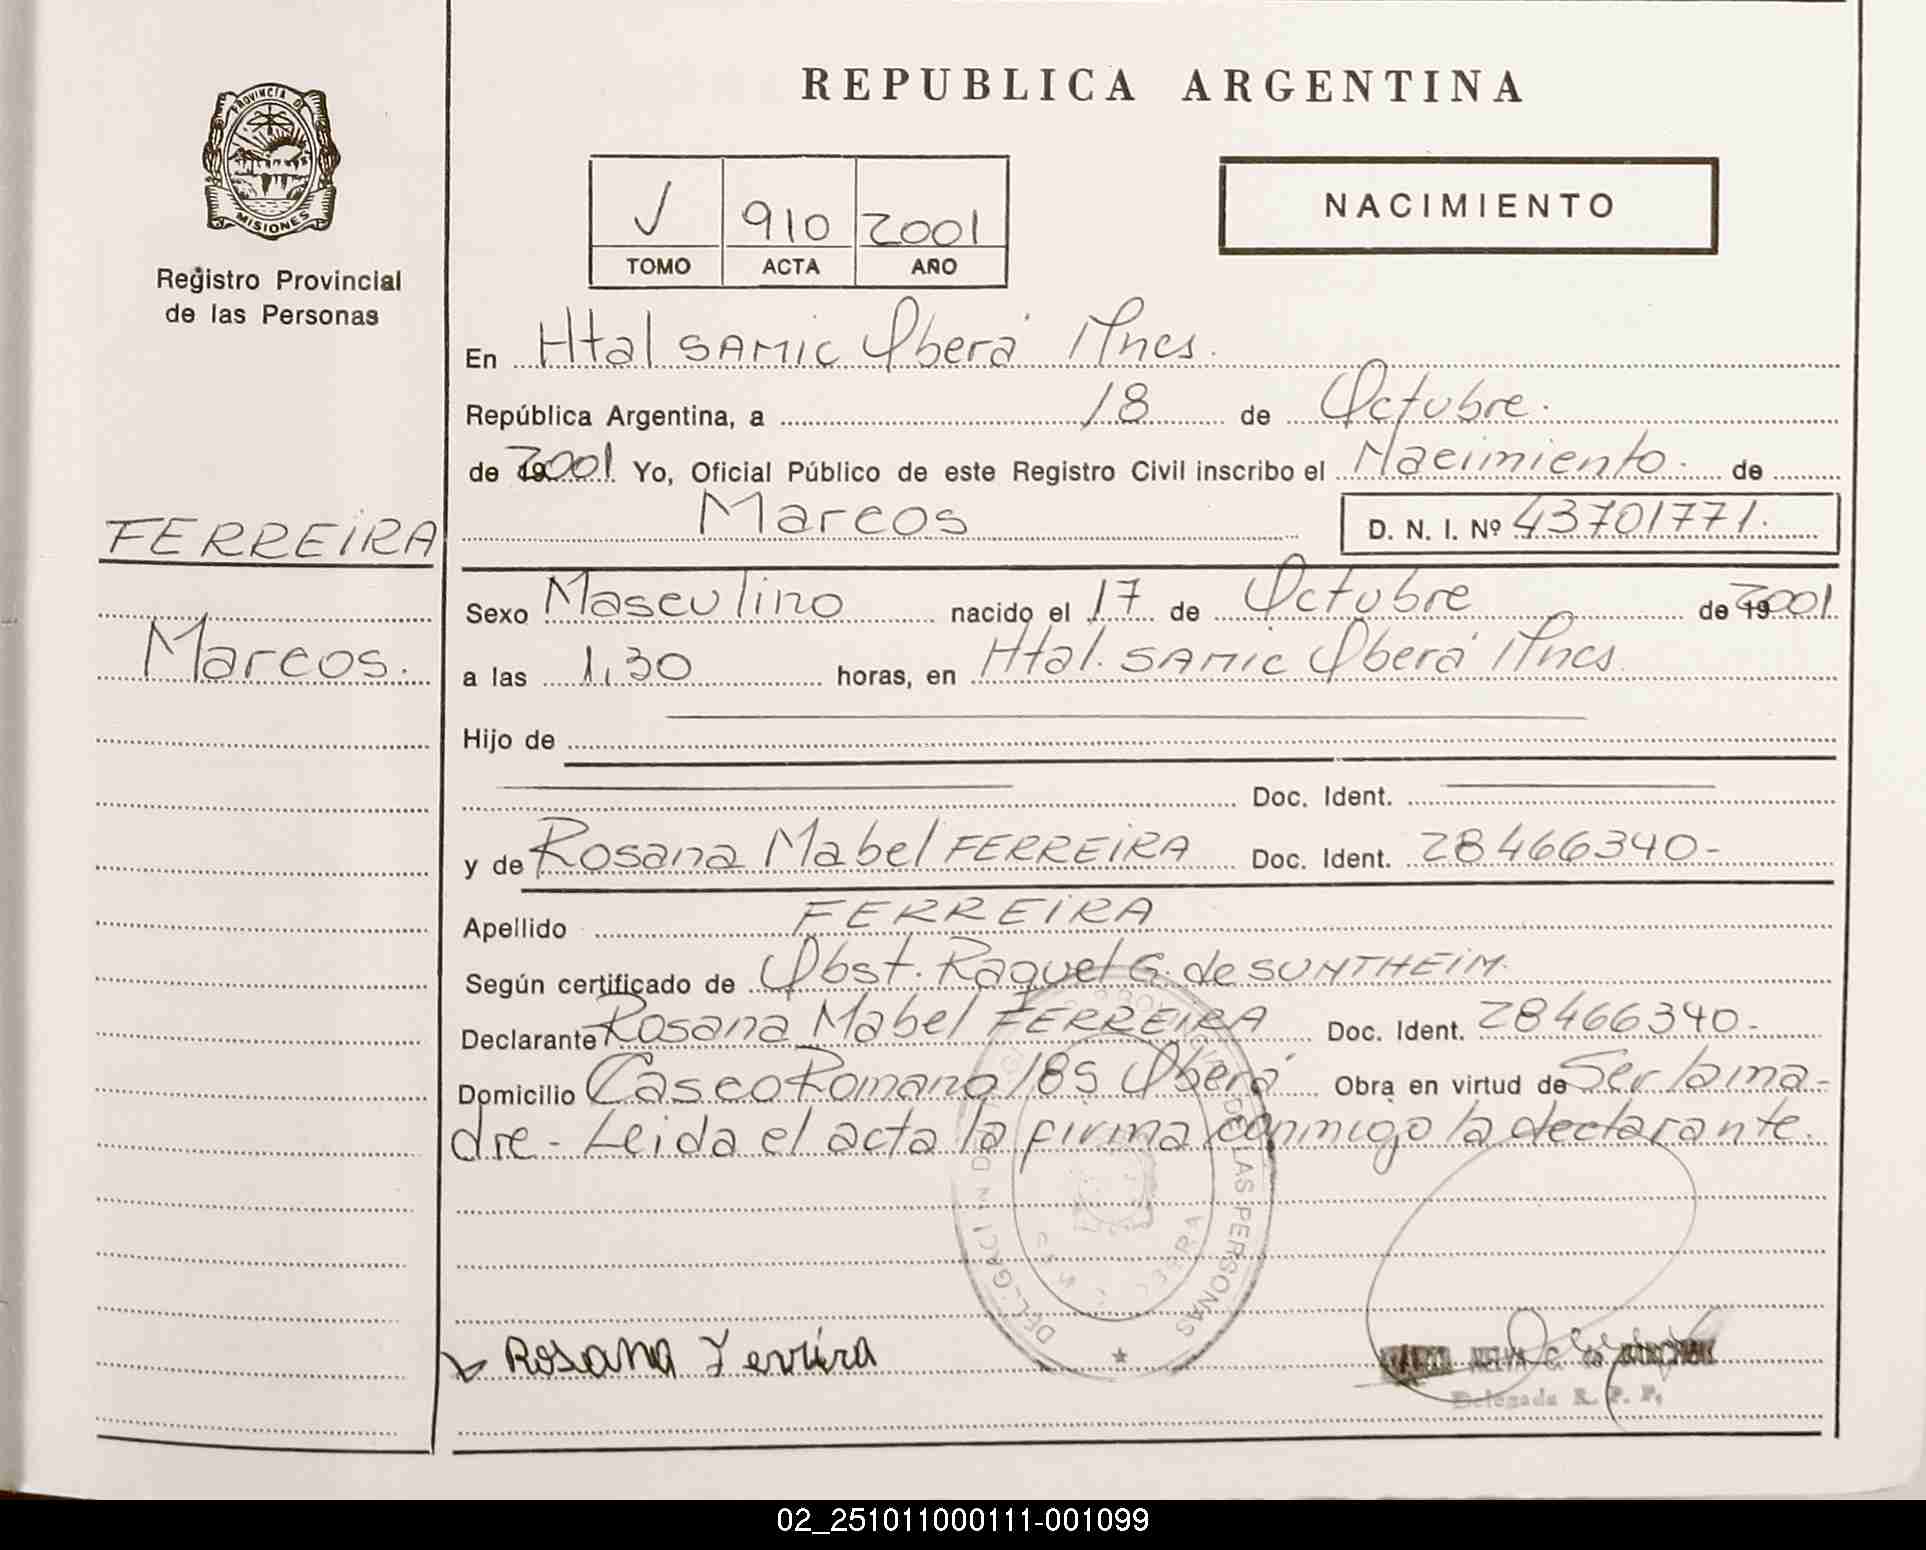 REPUBLICA ARGENTINA
PROVINCIA D
MISIONES
Registro Provincial
de las Personas
V 910 2001
TOMO ACTA AÑO
NACIMIENTO
En Htal SAMIC Oberá Mnes.
República Argentina, a 18 de Octubre.
de 2001 Yo, Oficial Público de este Registro Civil inscribo el Nacimiento. de
Marcos D. N. I. Nº 43701771.
FERREIRA
Marcos.
Sexo Masculino nacido el 17 de Octubre de 2001.
a las 1,30 horas, en Htal. SAMIC Oberá Mnes.
Hijo de
Doc. Ident.
y de Rosana Mabel FERREIRA Doc. Ident. 28466340-
Apellido FERREIRA
Según certificado de Obst. Raquel G. de SUNTHEIM.
Declarante Rosana Mabel FERREIRA Doc. Ident. 28466340-
Domicilio Caseo Romano 185 Oberá Obra en virtud de Ser la ma-
dre - Leida el acta la firma conmigo la declarante.
DE LAS PERSONAS
Rosana Ferreira
Delegada R. P. P.
02_251011000111-001099